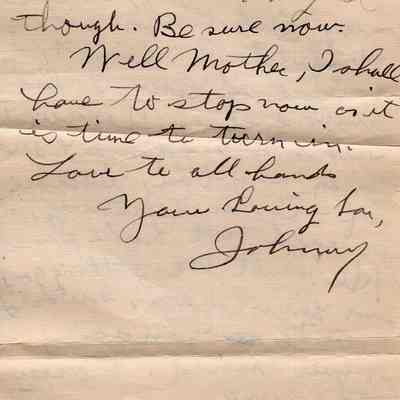 though. Be sure now.
Well Mother, I shall
have to stop now as it
is time to turn in.
Love to all hands
Your Loving Son,
Johnny